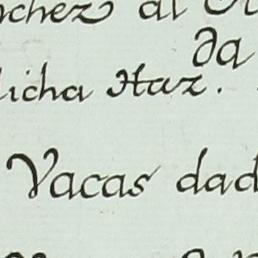 nchez al
da
licha Haz.
Vacas dad